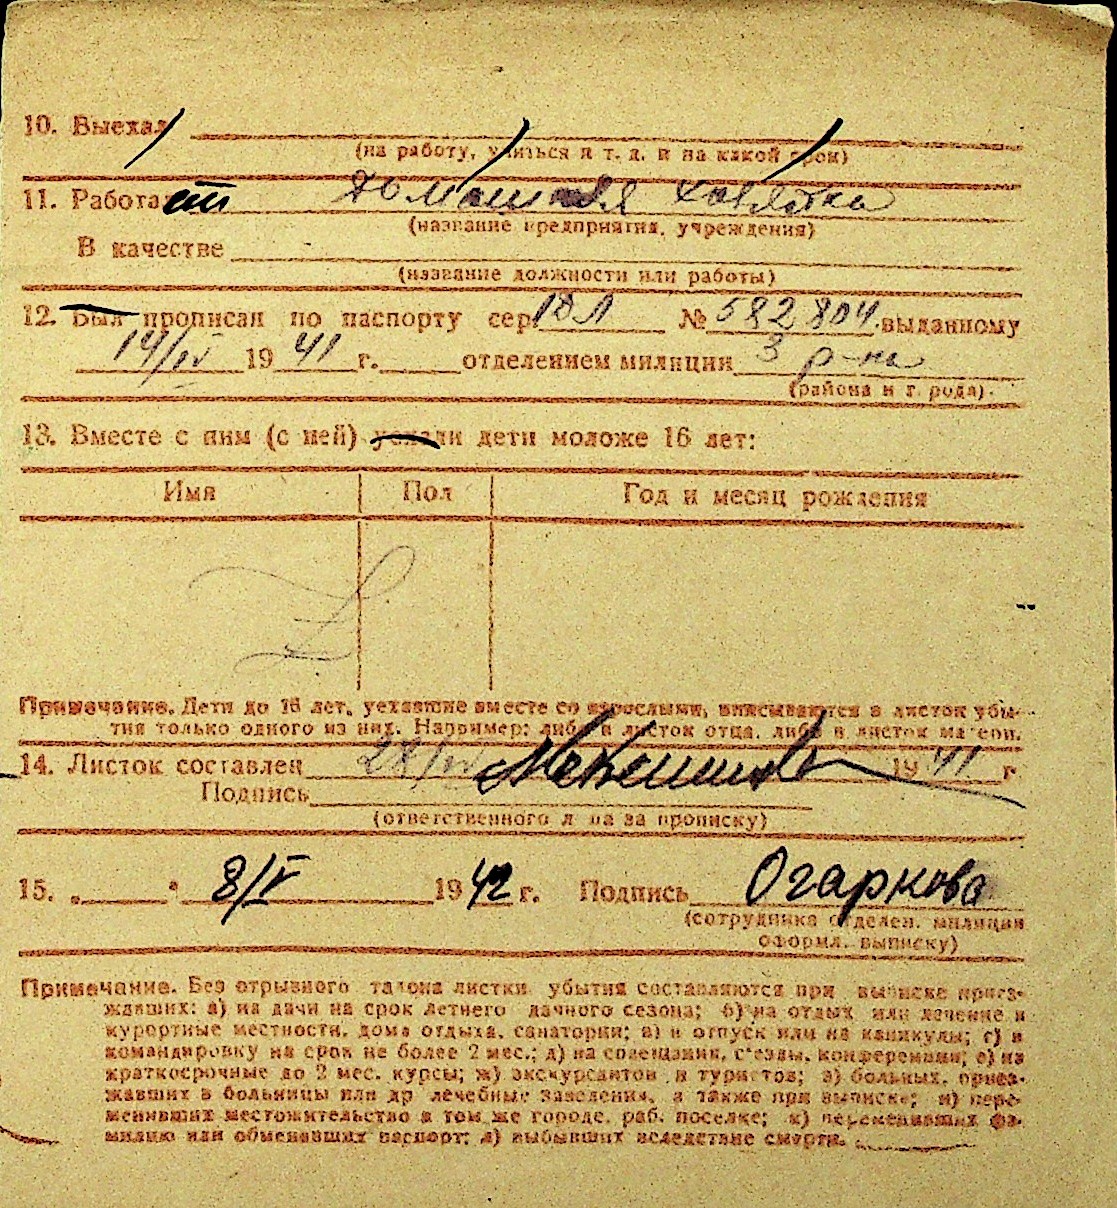 10. Выехал
(на работу, учиться и т. д. и на какой срок)
11. Работает Домашная хозяйка
(название предприятия, учреждения)
В качестве
(название должности или работы)
12. Был прописан по паспорту сер. № 582804 выданному
14/IV 1941 г. отделением милиции 3 р-на
(района и города)
13. Вместе с ним (с ней) уехали дети моложе 16 лет:
Имя Пол Год и месяц рождения
Примечание. Дети до 16 лет, уехавшие вместе со взрослыми, вписываются в листок убы-
тия только одного из них. Например: либо в листок отца, либо в листок матери.
14. Листок составлен 1941 г
Подпись
(ответственного лица за прописку)
15. „ " 8/V 1942 г. Подпись Огаркова
(сотрудника отделен. милиции
оформл. выписку)
Примечание. Без отрывного талона листки убытия составляются при выписке приез-
жавших: а) на дачи на срок летнего дачного сезона; б) на отдых или лечение в
курортные местности, дома отдыха, санатории; в) в отпуск или на каникулы; г) в
командировку на срок не более 2 мес.; д) на совещания, съезды, конференции; е) на
краткосрочные до 2 мес. курсы; ж) экскурсантов и туристов; з) больных, приез-
жавших в больницы или др лечебные заведения, а также при выписке; и) пере-
менивших местожительство в том же городе, раб. поселке; к) переменивших фа-
милию или обменявших паспорт; л) выбывших вследствие смерти.